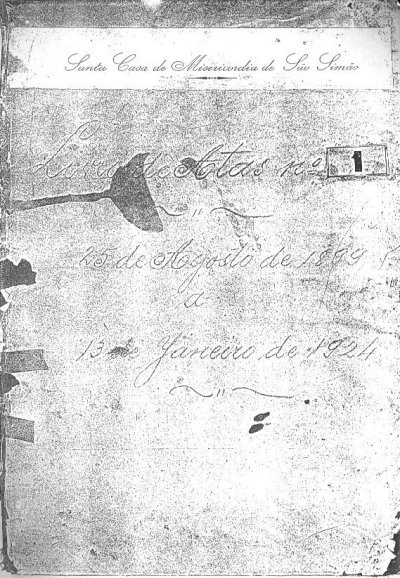 Santa Casa de Misericordia de São Simão
Livro de Atas nº 1
25 de Agosto de 1899
a
13 de Janeiro de 1924